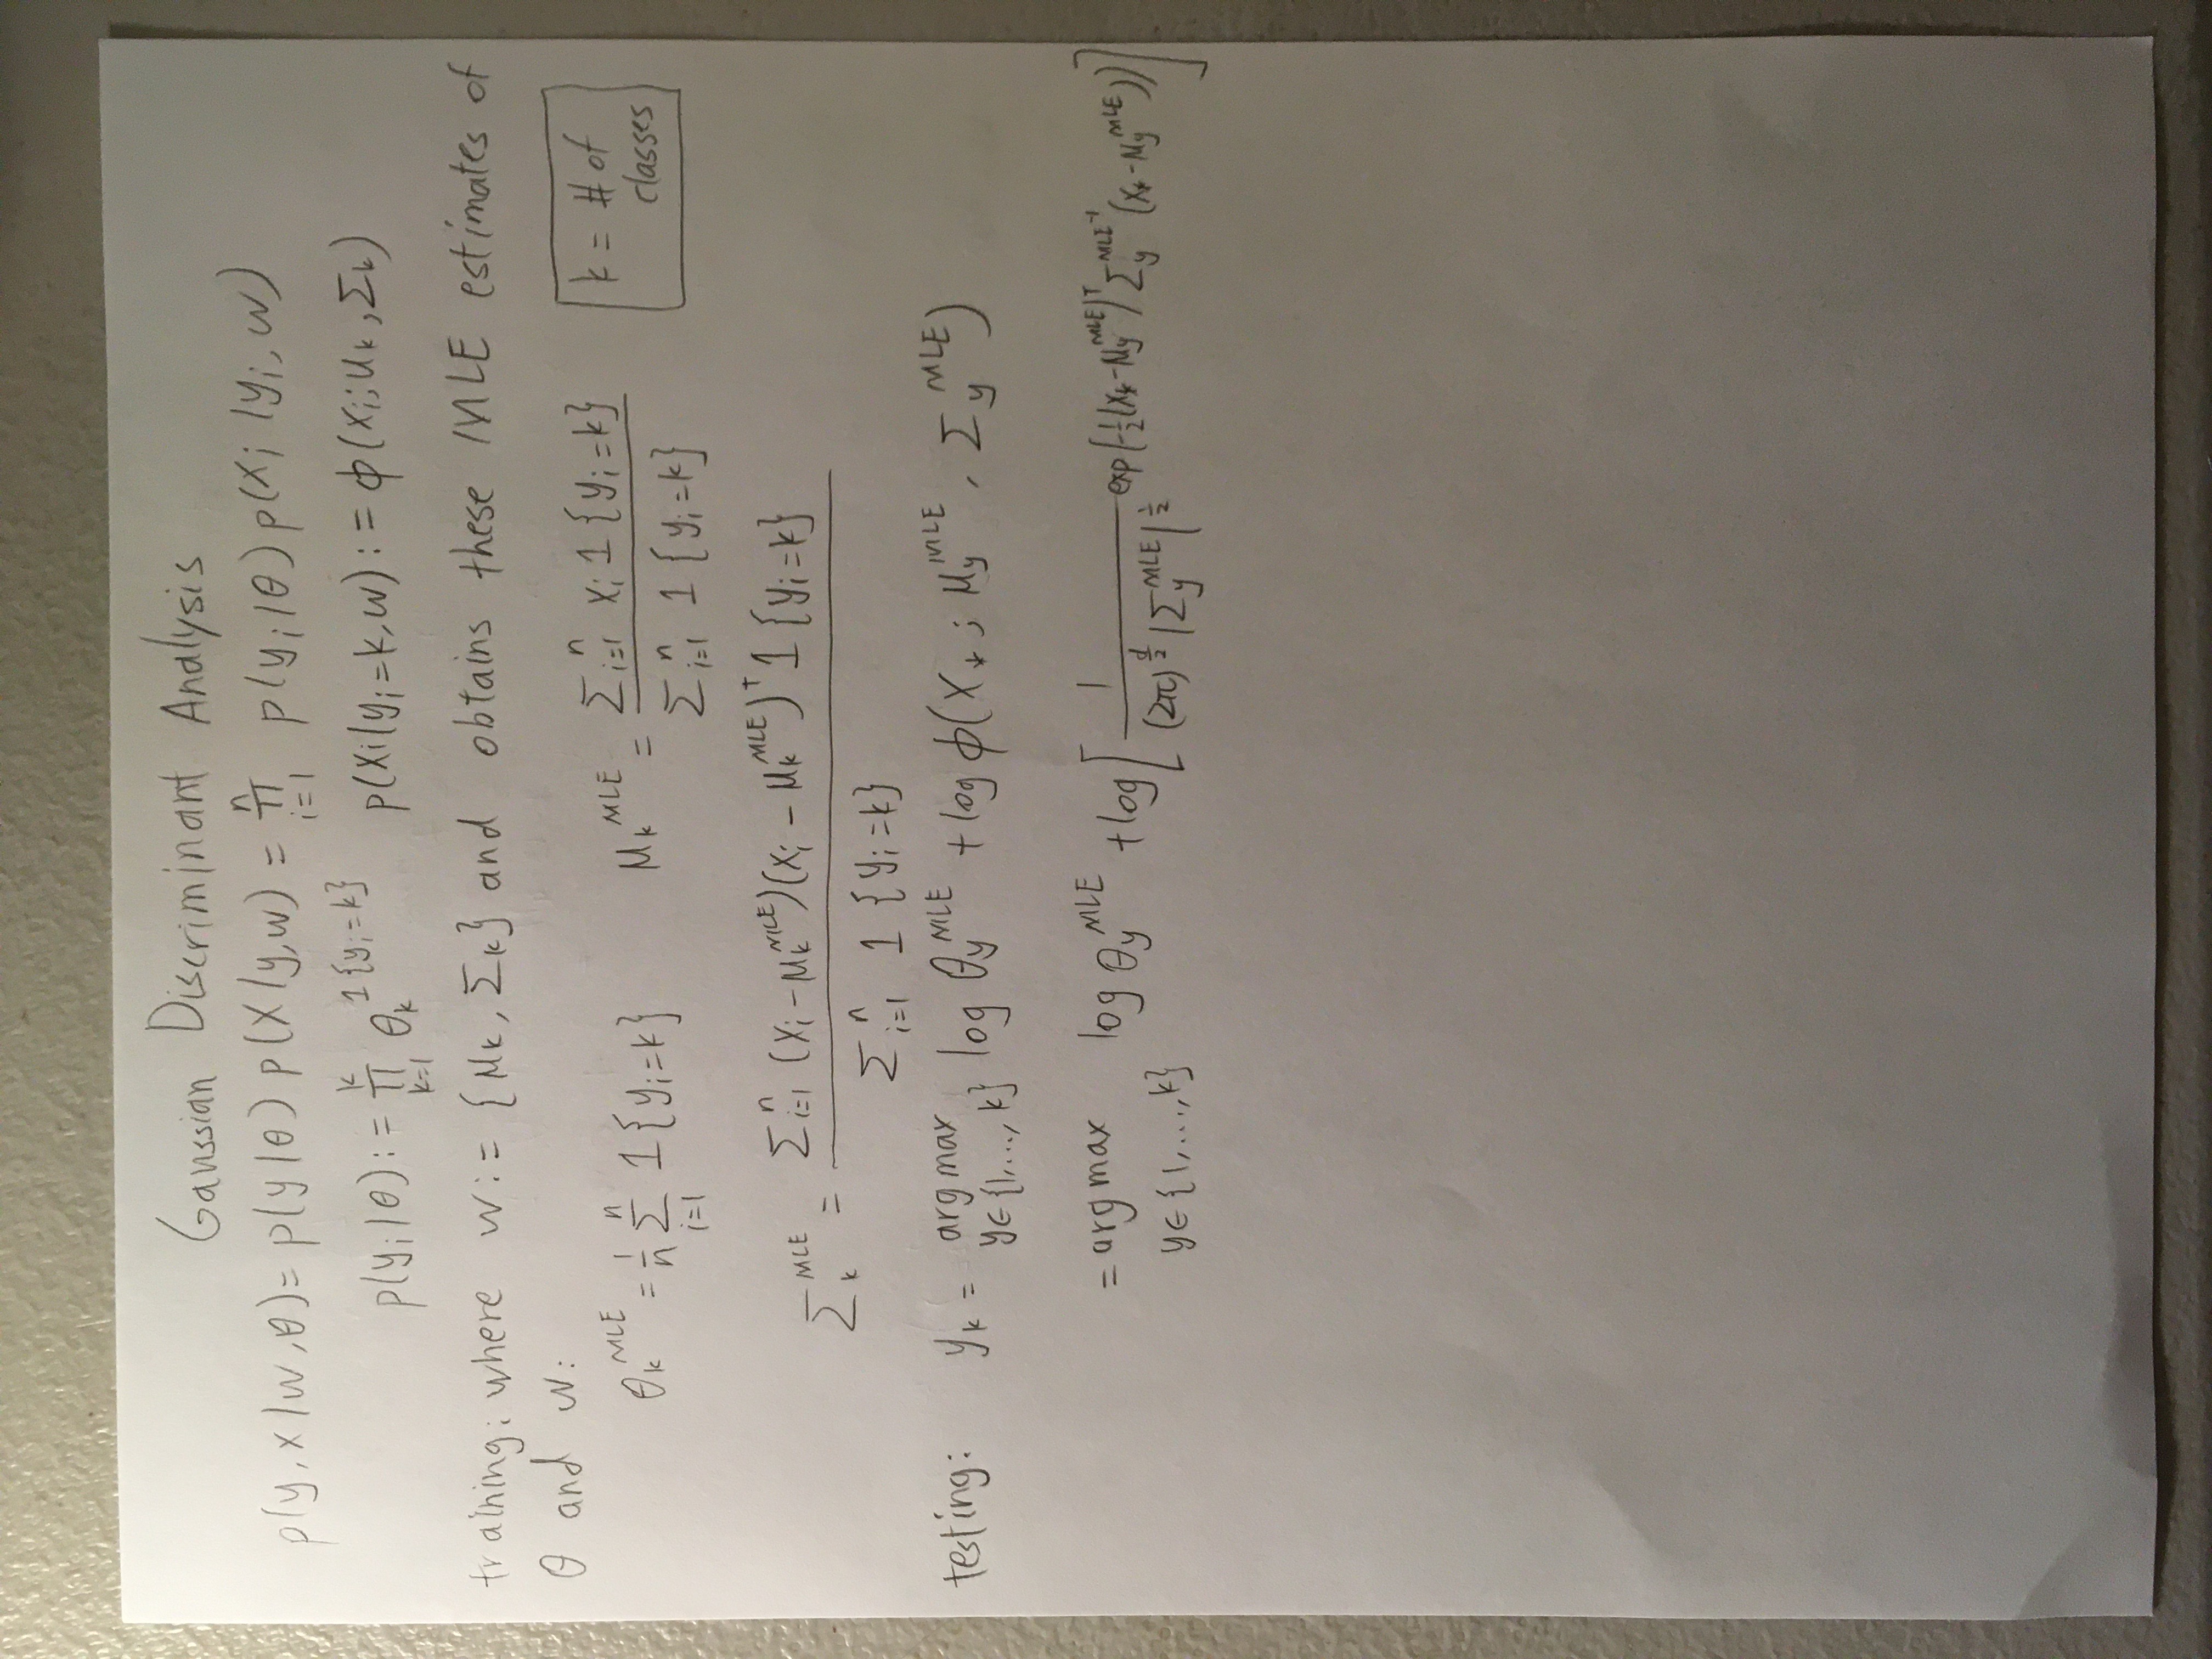 Gaussian Discriminant Analysis
p(y, x | w, θ) = p(y | θ) p(X | y, w) = ∏_{i=1}^{n} p(y_i | θ) p(x_i | y_i, w)
p(y_i | θ) := ∏_{k=1}^{k} θ_k^{1{y_i = k}} p(x_i | y_i = k, w) := ϕ(x_i; μ_k, Σ_k)
training: where w := {μ_k, Σ_k} and obtains these MLE estimates of
θ and w:
θ_k^{MLE} = \frac{1}{n} Σ_{i=1}^{n} 1{y_i = k} μ_k^{MLE} = \frac{Σ_{i=1}^{n} x_i 1{y_i = k}}{Σ_{i=1}^{n} 1{y_i = k}}
k = # of
classes
Σ_k^{MLE} = \frac{Σ_{i=1}^{n} (x_i - μ_k^{MLE})(x_i - μ_k^{MLE})^T 1{y_i = k}}{Σ_{i=1}^{n} 1{y_i = k}}
testing: y_k = argmax_{y∈{1,...,k}} log θ_y^{MLE} + log ϕ(X_*; μ_y^{MLE}, Σ_y^{MLE})
= argmax_{y∈{1,...,k}} log θ_y^{MLE} + log[\frac{1}{(2π)^{\frac{d}{2}} |Σ_y^{MLE}|^{\frac{1}{2}}} exp(-\frac{1}{2}(x_* - μ_y^{MLE})^T Σ_y^{MLE^{-1}} (x_* - μ_y^{MLE}))]